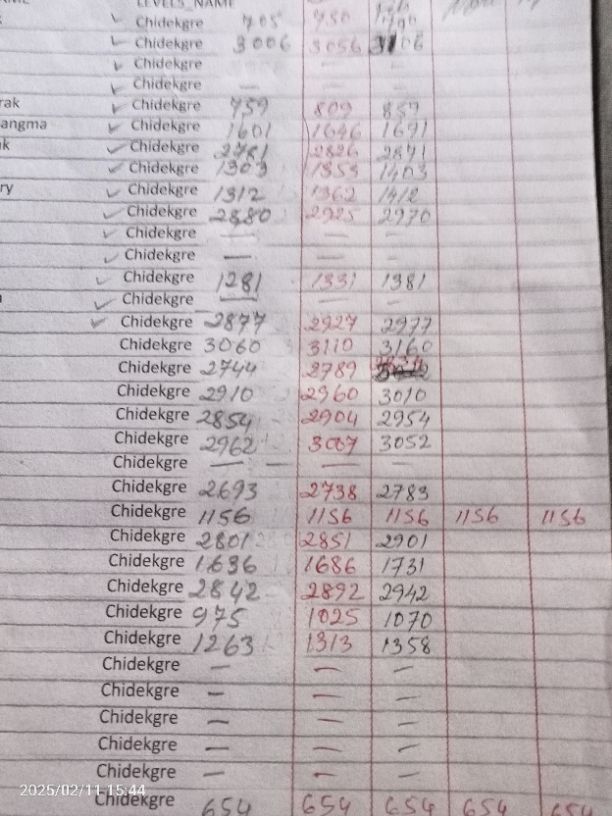 LEVELS_NAME
Chidekgre 705 750
Chidekgre 3006 3056 3106
Chidekgre — —
Chidekgre — — —
rak Chidekgre 759 809 859
angma Chidekgre 1601 1646 1691
k Chidekgre 2781 2826 2871
Chidekgre 1303 1353 1403
ry Chidekgre 1312 1362 1412
Chidekgre 2880 2925 2970
Chidekgre — — —
Chidekgre — — —
Chidekgre 1281 1331 1381
Chidekgre — — —
Chidekgre 2877 2927 2977
Chidekgre 3060 3110 3160
Chidekgre 2744 2789
Chidekgre 2910 2960 3010
Chidekgre 2854 2904 2954
Chidekgre 2962 3007 3052
Chidekgre — — — —
Chidekgre 2693 2738 2783
Chidekgre 1156 1156 1156 1156 1156
Chidekgre 2801 2851 2901
Chidekgre 1636 1686 1731
Chidekgre 2842 2892 2942
Chidekgre 975 1025 1070
Chidekgre 1263 1313 1358
Chidekgre — — —
Chidekgre — — —
Chidekgre — — —
Chidekgre — — —
Chidekgre — — —
2025/02/11 15:44
Chidekgre 654 654 654 654 654